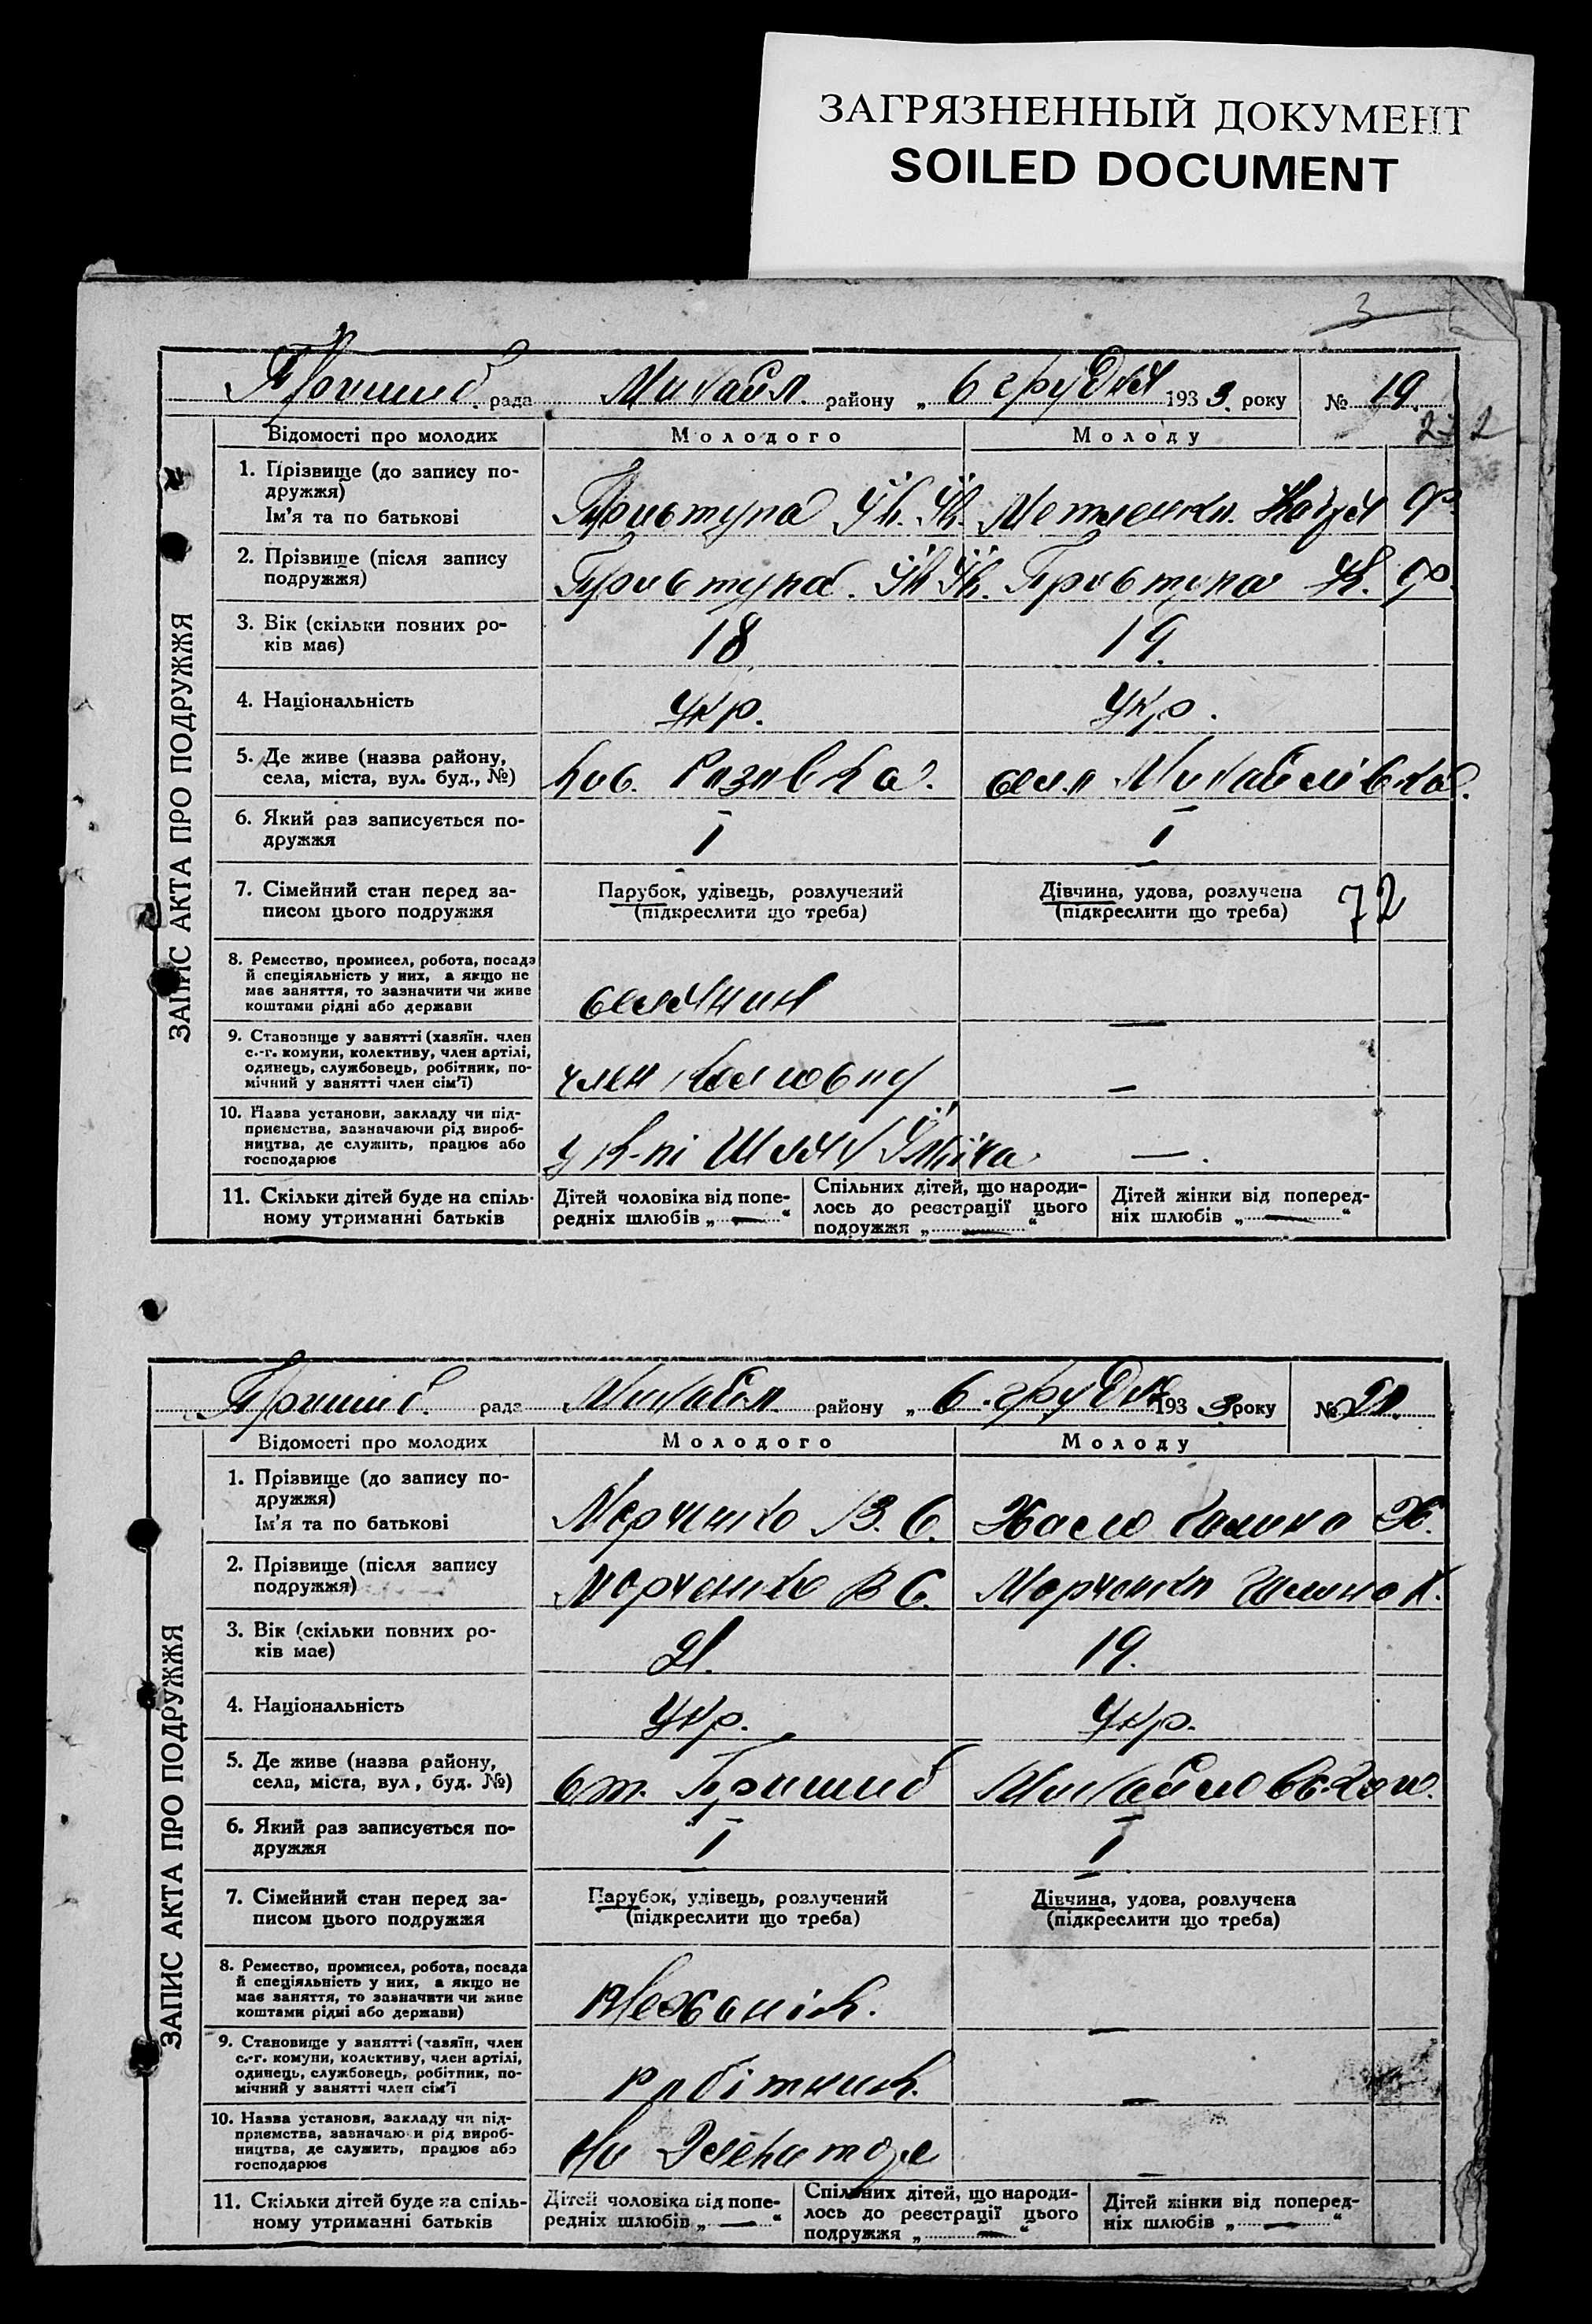 ЗАГРЯЗНЕННЫЙ ДОКУМЕНТ
SOILED DOCUMENT
3
Пришиб. рада Михайл. району „ 6 грудня 1933. року № 19.
Відомості про молодих Молодого Молоду
1. Прізвище (до запису по-
дружжя)
Ім'я та по батькові
Приступа
2. Прізвище (після запису
подружжя)
Приступа Приступа
3. Вік (скільки повних ро-
ків має)
18 19.
4. Національність укр. укр.
5. Де живе (назва району,
села, міста, вул. буд., №)
село Михайлівка.
6. Який раз записується по-
дружжя
I I
7. Сімейний стан перед за-
писом цього подружжя
Парубок, удівець, розлучений
(підкреслити що треба)
Дівчина, удова, розлучена
(підкреслити що треба)
72
8. Ремество, промисел, робота, посада
й спеціяльність у них, а якщо не
має заняття, то зазначити чи живе
коштами рідні або держави
селянин —
9. Становище у занятті (хазяїн. член
с.-г. комуни, колективу, член артілі,
одинець, службовець, робітник, по-
мічний у занятті член сім'ї)
член —
10. Назва установи, закладу чи під-
приємства, зазначаючи рід вироб-
ництва, де служить, працює або
господарює
Шлях —.
11. Скільки дітей буде на спіль-
ному утриманні батьків
Дітей чоловіка від попе-
редніх шлюбів „ — “
Спільних дітей, що народи-
лось до реєстрації цього
подружжя „ — “
Дітей жінки від поперед-
ніх шлюбів „ — “
ЗАПИС АКТА ПРО ПОДРУЖЖЯ
Пришиб. рада Михайл. району „ 6. грудня 1933 року № 20.
Відомості про молодих Молодого Молоду
1. Прізвище (до запису по-
дружжя)
Ім'я та по батькові
Марченко В. С. Галина
2. Прізвище (після запису
подружжя)
Марченко В С. Марченко Галина К.
3. Вік (скільки повних ро-
ків має)
21. 19.
4. Національність укр. укр.
5. Де живе (назва району,
села, міста, вул, буд. №)
ст. Пришиб
6. Який раз записується по-
дружжя
I I
7. Сімейний стан перед за-
писом цього подружжя
Парубок, удівець, розлучений
(підкреслити що треба)
Дівчина, удова, розлучена
(підкреслити що треба)
8. Ремество, промисел, робота, посада
й спеціяльність у них, а якщо не
має заняття, то зазначити чи живе
коштами рідні або держави)
Механік. —
9. Становище у занятті (хазяїн, член
с.-г. комуни, колективу, член артілі,
одинець, службовець, робітник, по-
мічний у занятті член сім'ї
робітник. —
10. Назва установи, закладу чи під-
приємства, зазначаючи рід вироб-
ництва, де служить, працює або
господарює
На Элеваторе —
11. Скільки дітей буде на спіль-
ному утриманні батьків
Дітей чоловіка від попе-
редніх шлюбів „ — “
Спільних дітей, що народи-
лось до реєстрації цього
подружжя „ — “
Дітей жінки від поперед-
ніх шлюбів „ — “
ЗАПИС АКТА ПРО ПОДРУЖЖЯ